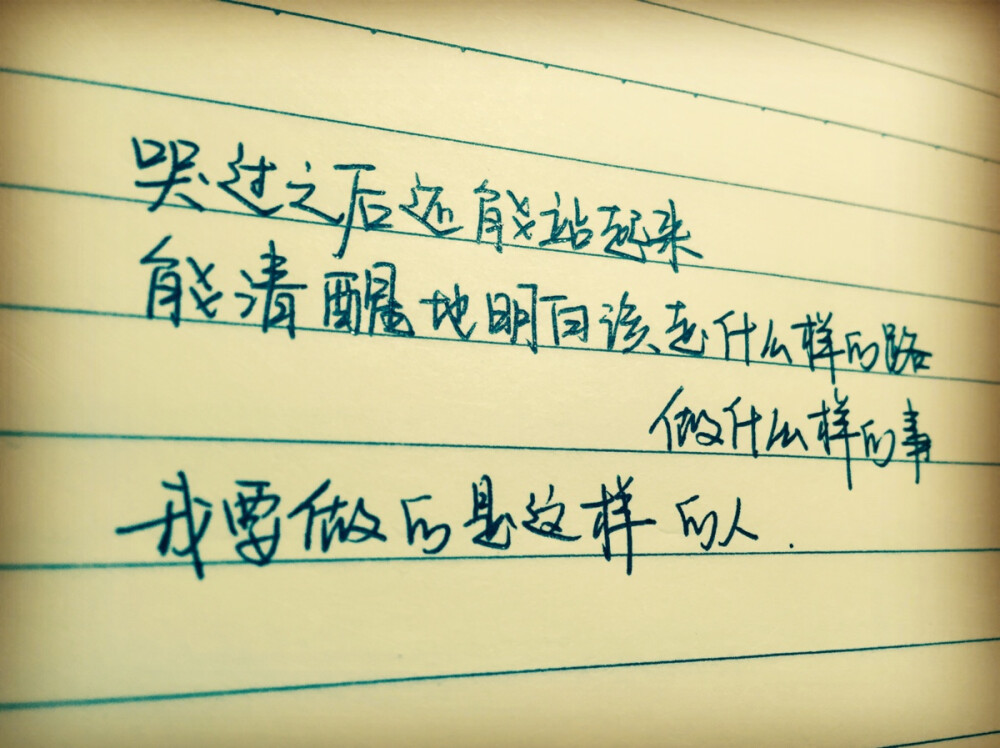 哭过之后还能站起来
能清醒地明白该走什么样的路
做什么样的事
我要做的是这样的人.